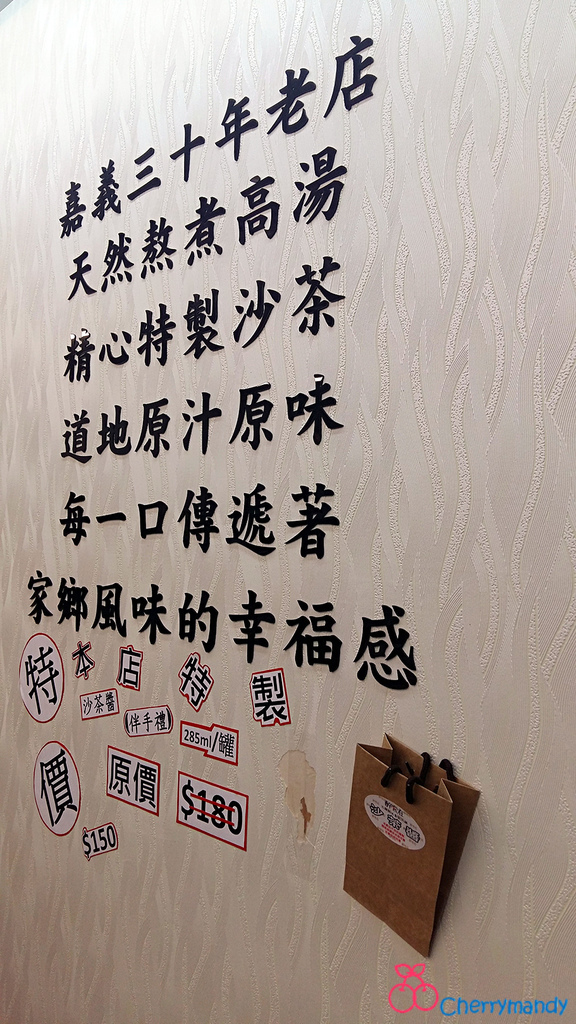 嘉義三十年老店
天然熬煮高湯
精心特製沙茶
道地原汁原味
每一口傳遞著
家鄉風味的幸福感
本店特製
特價
沙茶醬
伴手禮
285ml/罐
原價
$180
$150
沙茶醬
Cherrymandy